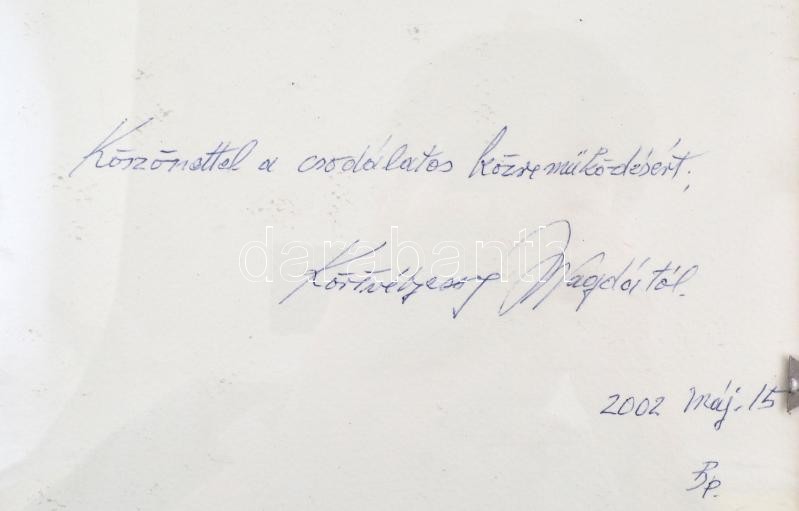 Köszönettel a csodálatos közreműködésért;
darabanth
Körtvélyessy Magdától.
2002 máj. 15
Bp.